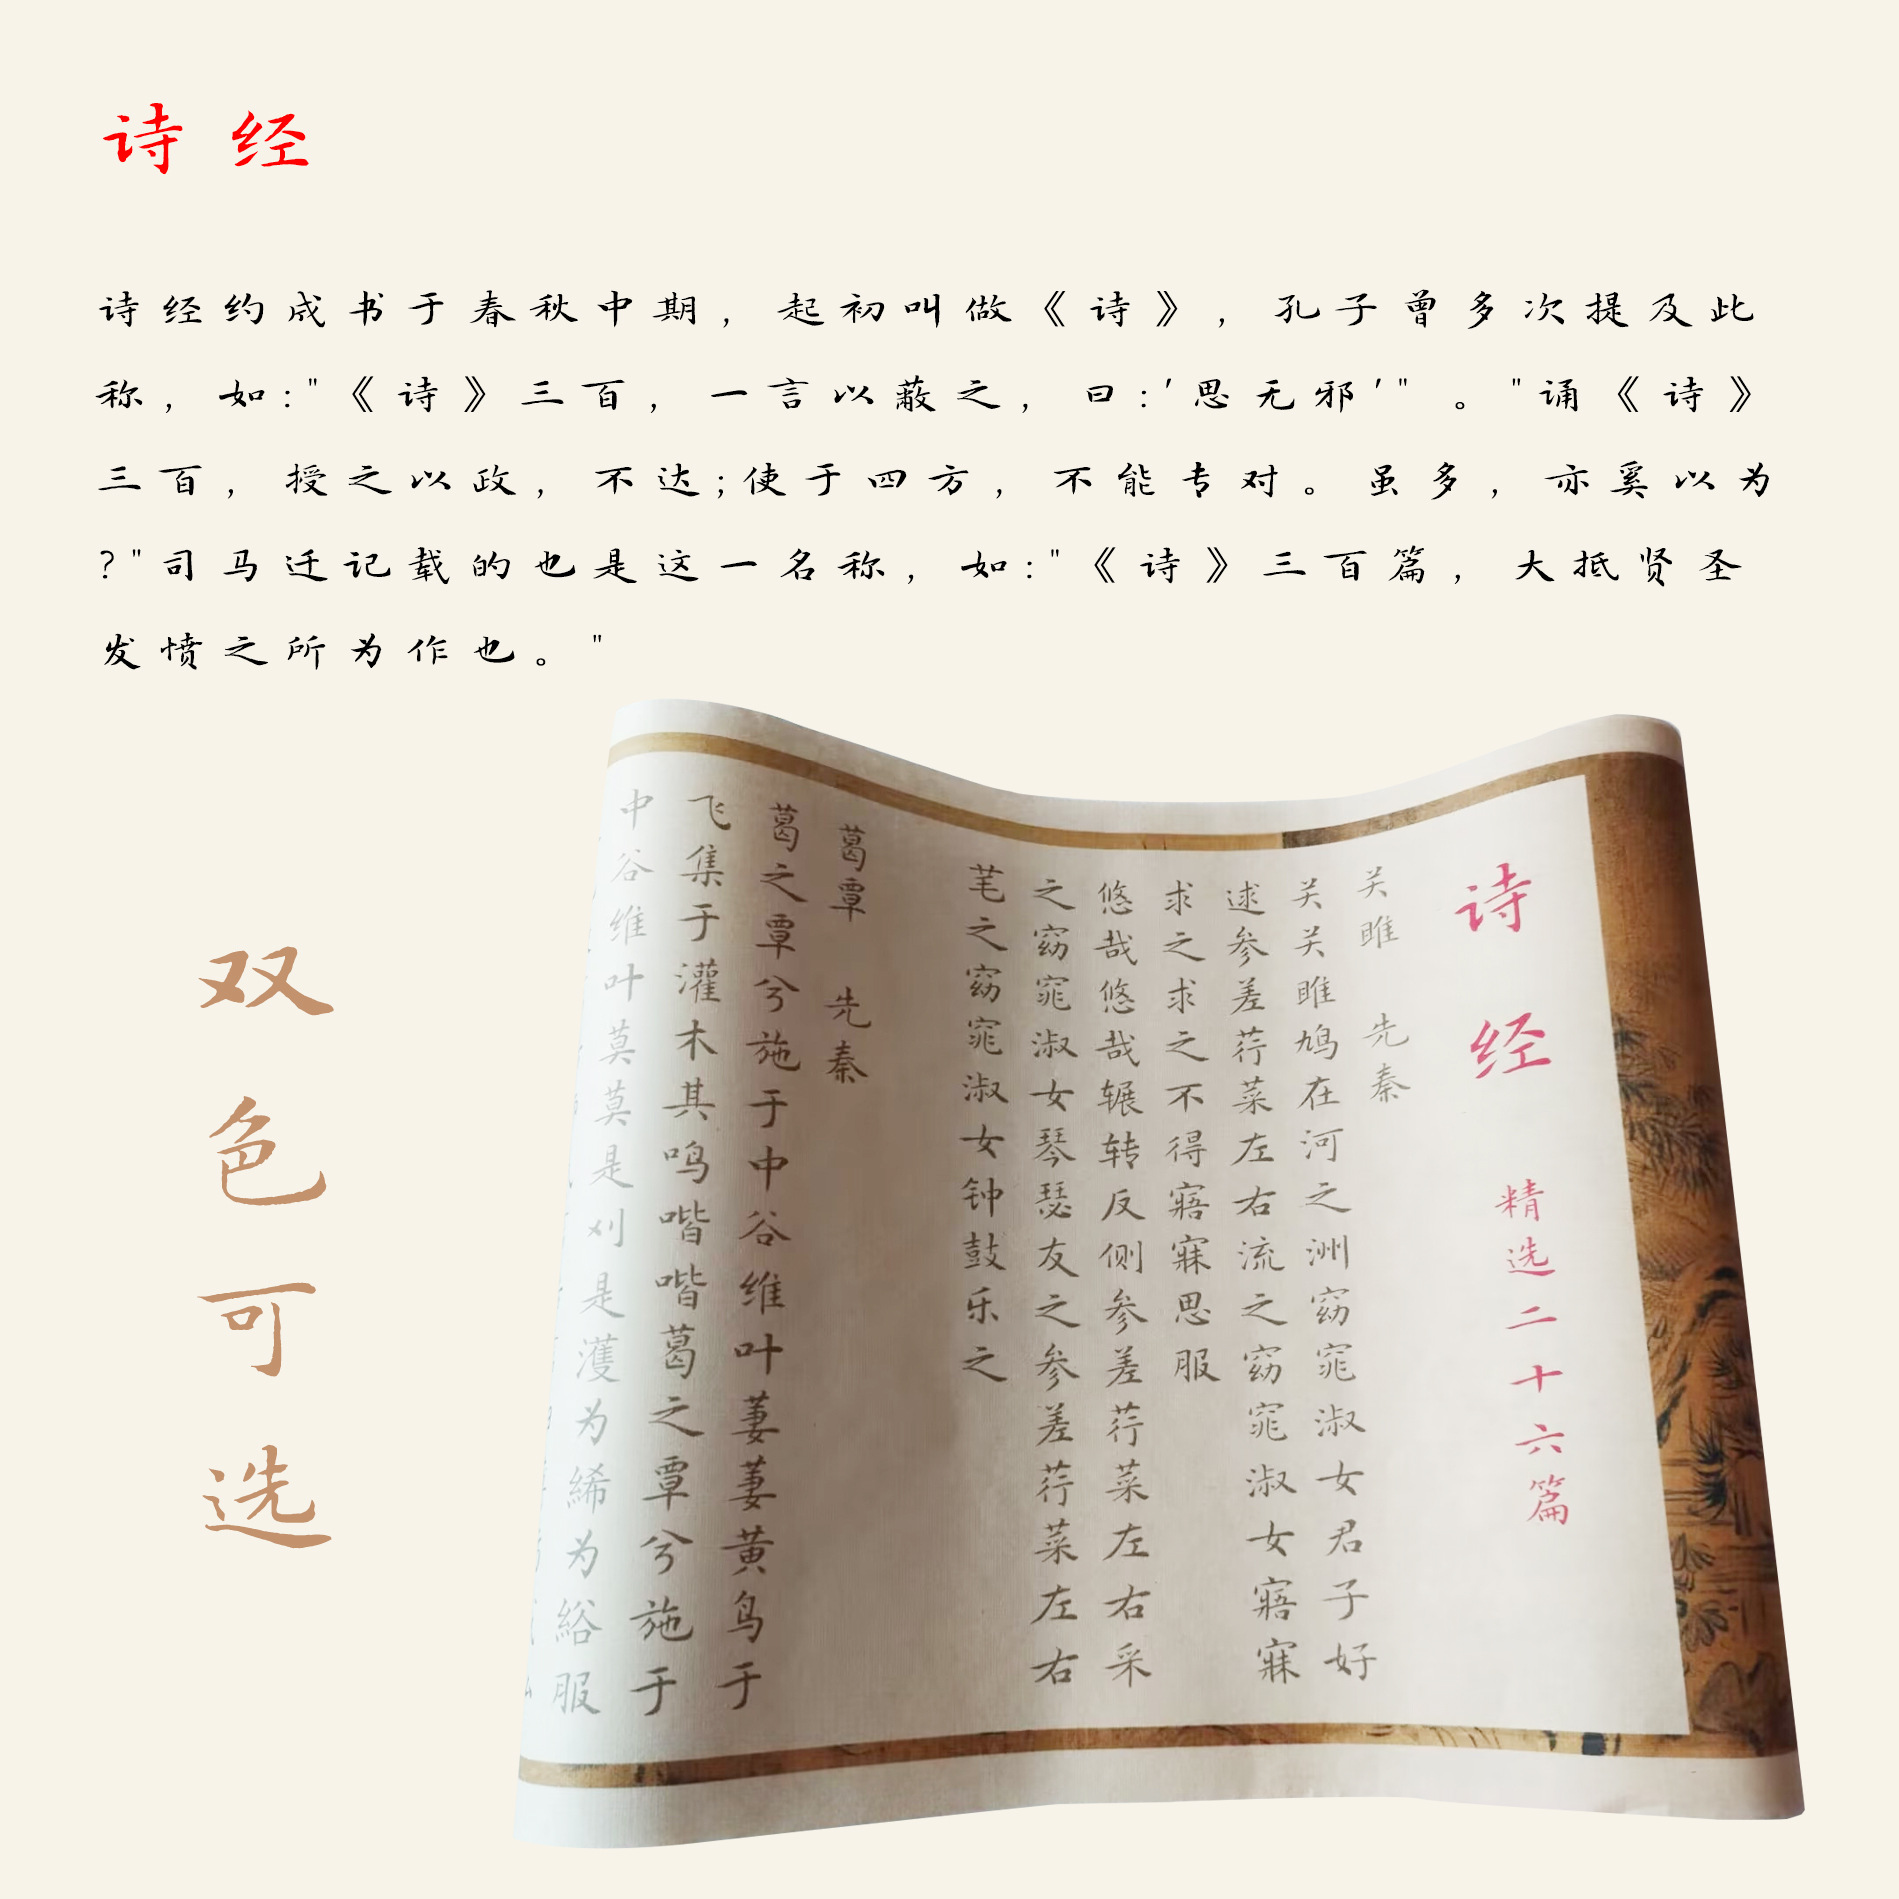 诗经
诗经约成书于春秋中期,起初叫做《诗》,孔子曾多次提及此
称,如:"《诗》三百,一言以蔽之,曰:'思无邪'"。"诵《诗》
三百,授之以政,不达;使于四方,不能专对。虽多,亦奚以为
?"司马迁记载的也是这一名称,如:"《诗》三百篇,大抵贤圣
发愤之所为作也。"
双色可选
诗经 精选二十六篇
关雎 先秦
关关雎鸠在河之洲窈窕淑女君子好
逑参差荇菜左右流之窈窕淑女寤寐
求之求之不得寤寐思服
悠哉悠哉辗转反侧参差荇菜左右采
之窈窕淑女琴瑟友之参差荇菜左右
芼之窈窕淑女钟鼓乐之
葛覃 先秦
葛之覃兮施于中谷维叶萋萋黄鸟于
飞集于灌木其鸣喈喈葛之覃兮施于
中谷维叶莫莫是刈是濩为絺为绤服